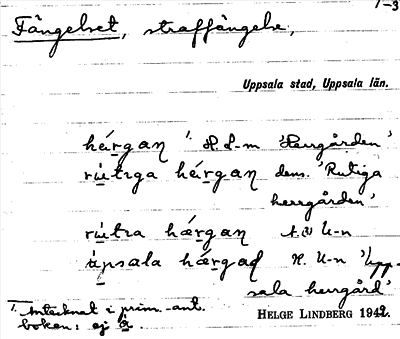 1-3
Fängelset, straffängelse,
Uppsala stad, Uppsala län.
hárgan ¹· H. L-m 'Herrgården'
rútiga hárgan dens. 'Rutiga
herrgården'
rútra hárgan U-n
úpsala hárgad H. U-n 'Upp-
sala herrgård'
1. Antecknat i prim.-ant.
boken: ej
HELGE LINDBERG 1942.